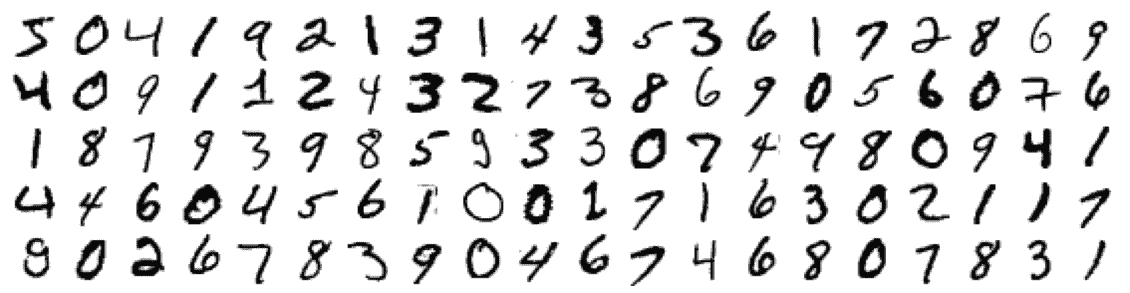 5 0 4 1 9 2 1 3 1 4 3 5 3 6 1 7 2 8 6 9
4 0 9 1 1 2 4 3 2 7 3 8 6 9 0 5 6 0 7 6
1 8 7 9 3 9 8 5 9 3 3 0 7 4 9 8 0 9 4 1
4 4 6 0 4 5 6 1 0 0 1 7 1 6 3 0 2 1 1 7
9 0 2 6 7 8 3 9 0 4 6 7 4 6 8 0 7 8 3 1